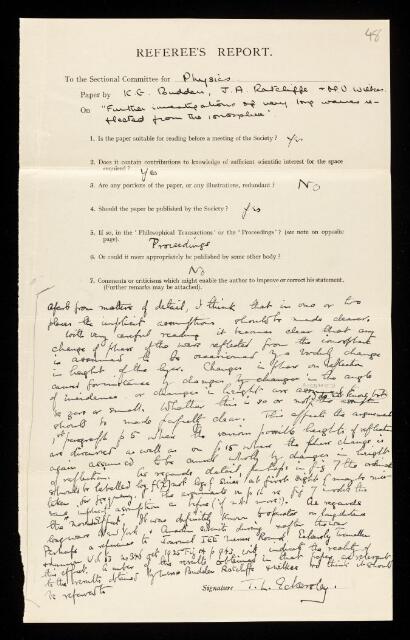 48
REFEREE'S REPORT.
To the Sectional Committee for Physics
Paper by K.G. Budden, J.A. Ratcliffe + M V Wilkes.
On "Further investigations of very long waves re-
flected from the ionosphere"
1. Is the paper suitable for reading before a meeting of the Society? Yes
2. Does it contain contributions to knowledge of sufficient scientific interest for the space
required? Yes
3. Are any portions of the paper, or any illustrations, redundant? No
4. Should the paper be published by the Society? Yes
5. If so, in the 'Philosophical Transactions' or the 'Proceedings'? (see note on opposite
page). Proceedings
6. Or could it more appropriately be published by some other body?
No
7. Comments or criticisms which might enable the author to improve or correct his statement.
(Further remarks may be attached).
Apart from matters of detail, I think that in one or two
places the implicit assumptions should be made clearer.
With very careful reading it becomes clear that any
change of phase of the wave reflected from the ionosphere
is assumed to be occasioned by a change
in height of the layer. Changes in phase on reflection
caused by changes in the angle
of incidence, or changes in height, are
be zero or small. Whether this is so or not
should be made perfectly clear. This affects the argument
1st paragraph p 5 where the various possible heights of reflection
are discussed as well as on 15 where the phase change is
again assumed to be caused wholly by changes in height
of reflection. As regards detail, perhaps in fig 7 the ordinate
should be labelled log f(z) not log f since at first sight f might be mis-
taken for frequency.
As regards
the
long wave New York
Perhaps a reference to Journal IEE Eckersley
Vol 63 1925 Fig 64 p 943 will indicate the reality of
this effect. A number of the results obtained in that paper are relevant
to the results obtained by Budden Ratcliffe + Wilkes and I think it should
be referred to
Signature T. L. Eckersley.